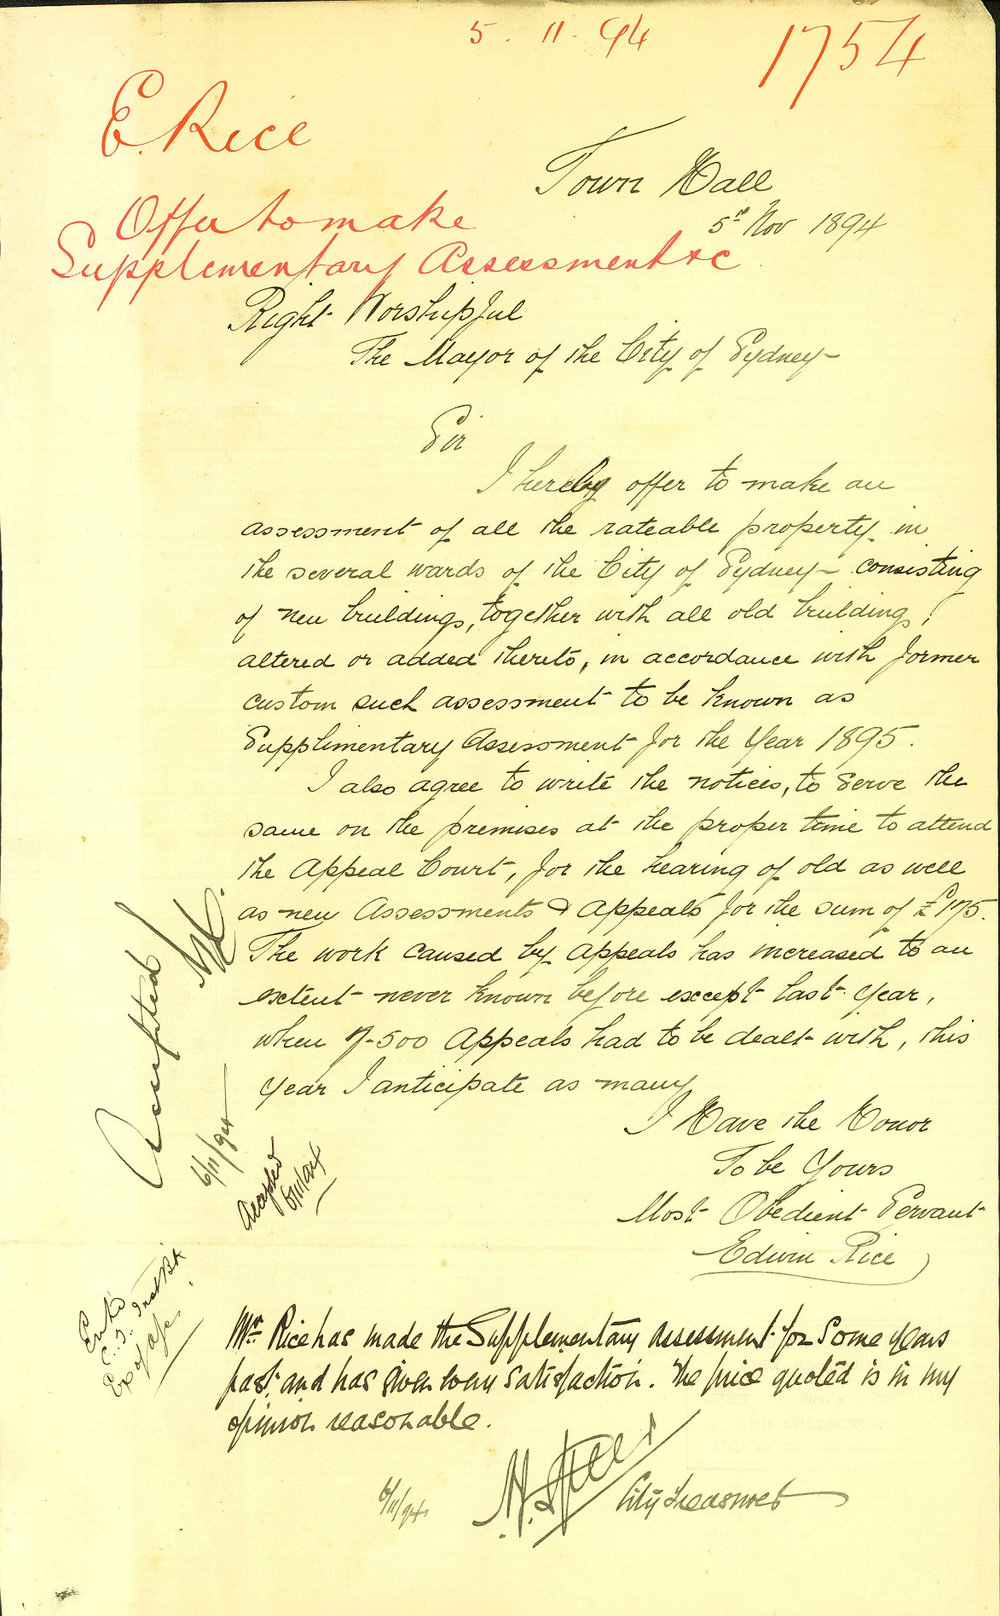 5. 11. 94
1754
E. Rice
Offer to make
Supplementary Assessment &c
Town Hall
5th Nov 1894
Right Worshipful
The Mayor of the City of Sydney -
Sir
I hereby offer to make an
assessment of all the rateable property in
the several wards of the City of Sydney - consisting
of new buildings, together with all old buildings,
altered or added thereto, in accordance with former
custom such assessment to be known as
Supplimentary Assessment for the Year 1895.
I also agree to write the notices, to serve the
same on the premises at the proper time to attend
the Appeal Court, for the hearing of old as well
as new Assessments & Appeals for the sum of £175.
The work caused by appeals has increased to an
extent never known before except last Year,
when 500 Appeals had to be dealt with, this
Year I anticipate as many
I Have the Honor
To be Yours
Most Obedient Servant
Edwin Rice
Accepted
6/11/94
Accepted
6/11/94
Mr. Rice has made the Supplementary assessment for some years
past, and has given every satisfaction. The price quoted is in my
opinion reasonable.
6/11/94
City Treasurer